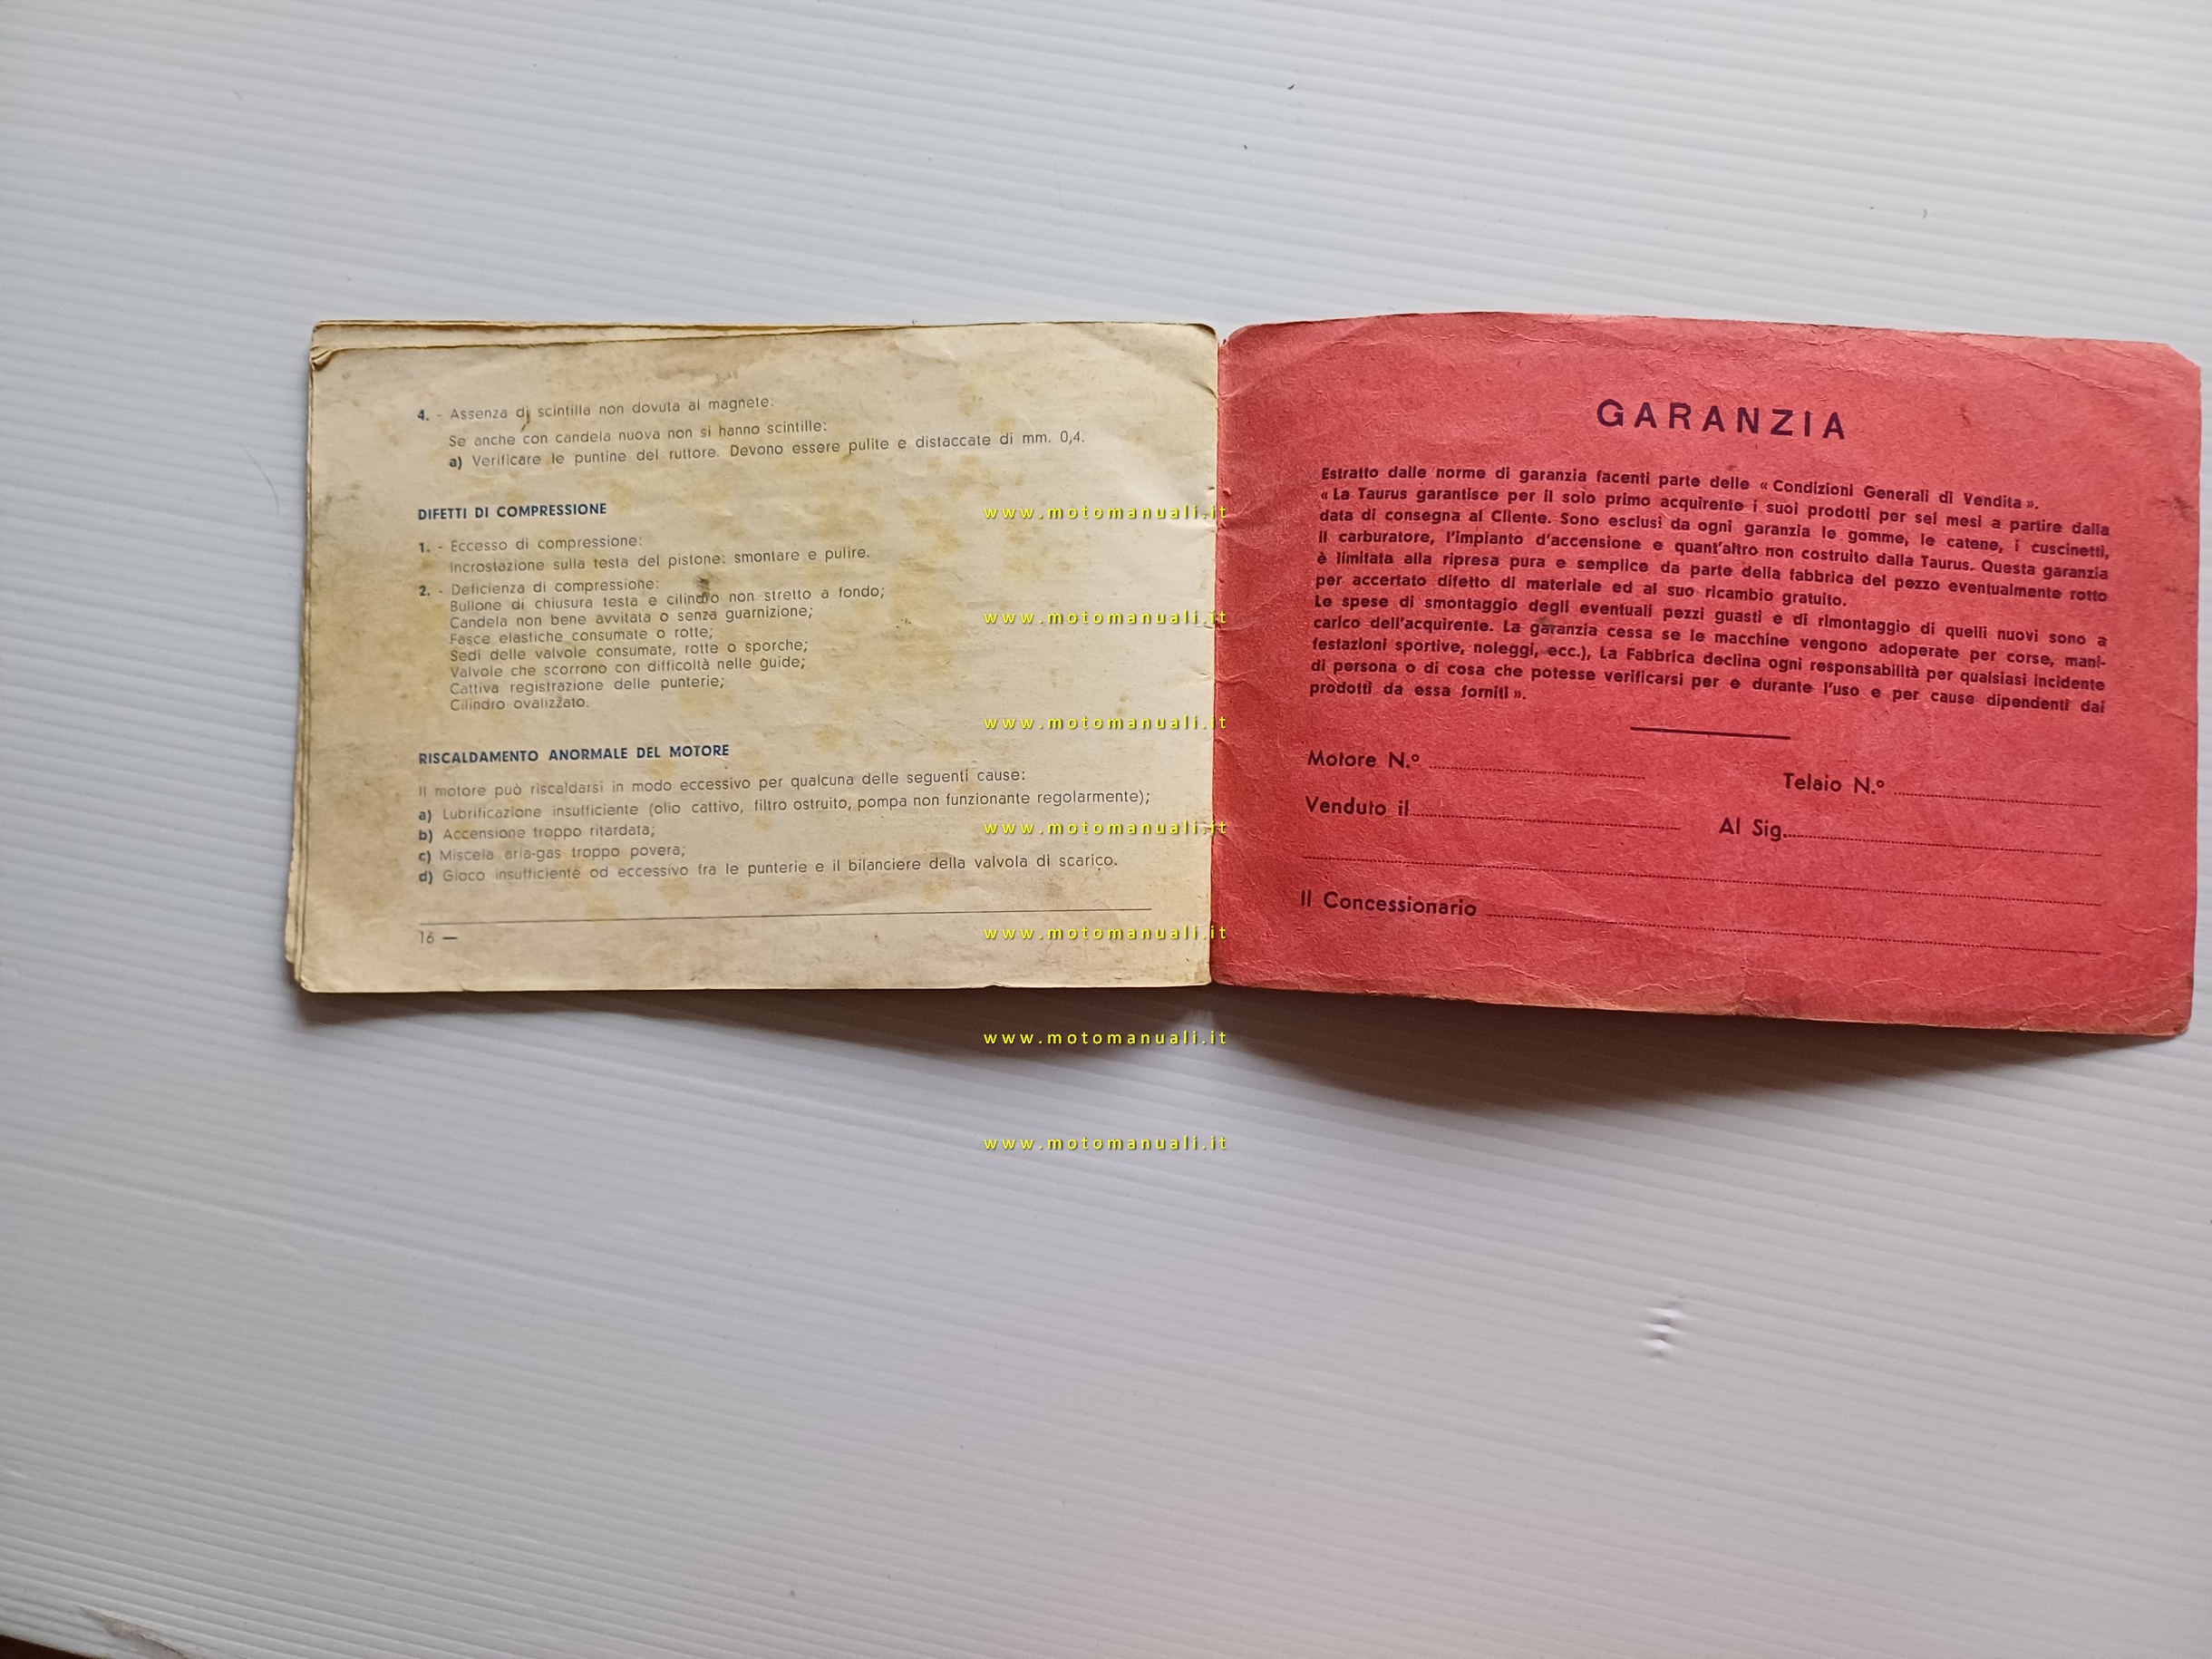 4. - Assenza di scintilla non dovuta al magnete:
Se anche con candela nuova non si hanno scintille:
a) Verificare le puntine del ruttore. Devono essere pulite e distaccate di mm. 0,4.
DIFETTI DI COMPRESSIONE
1. - Eccesso di compressione:
Incrostazione sulla testa del pistone: smontare e pulire.
2. - Deficienza di compressione:
Bullone di chiusura testa e cilindro non stretto a fondo;
Candela non bene avvitata o senza guarnizione;
Fasce elastiche consumate o rotte;
Sedi delle valvole consumate, rotte o sporche;
Valvole che scorrono con difficoltà nelle guide;
Cattiva registrazione delle punterie;
Cilindro ovalizzato.
RISCALDAMENTO ANORMALE DEL MOTORE
Il motore può riscaldarsi in modo eccessivo per qualcuna delle seguenti cause:
a) Lubrificazione insufficiente (olio cattivo, filtro ostruito, pompa non funzionante regolarmente);
b) Accensione troppo ritardata;
c) Miscela aria-gas troppo povera;
d) Gioco insufficiente od eccessivo fra le punterie e il bilanciere della valvola di scarico.
16 —
GARANZIA
Estratto dalle norme di garanzia facenti parte delle « Condizioni Generali di Vendita ».
« La Taurus garantisce per il solo primo acquirente i suoi prodotti per sei mesi a partire dalla
data di consegna al Cliente. Sono esclusi da ogni garanzia le gomme, le catene, i cuscinetti,
il carburatore, l'impianto d'accensione e quant'altro non costruito dalla Taurus. Questa garanzia
è limitata alla ripresa pura e semplice da parte della fabbrica del pezzo eventualmente rotto
per accertato difetto di materiale ed al suo ricambio gratuito.
Le spese di smontaggio degli eventuali pezzi guasti e di rimontaggio di quelli nuovi sono a
carico dell'acquirente. La garanzia cessa se le macchine vengono adoperate per corse, mani-
festazioni sportive, noleggi, ecc.), La Fabbrica declina ogni responsabilità per qualsiasi incidente
di persona o di cosa che potesse verificarsi per e durante l'uso e per cause dipendenti dai
prodotti da essa forniti ».
Motore N.º Telaio N.º
Venduto il Al Sig.
Il Concessionario
www.motomanuali.it
www.motomanuali.it
www.motomanuali.it
www.motomanuali.it
www.motomanuali.it
www.motomanuali.it
www.motomanuali.it